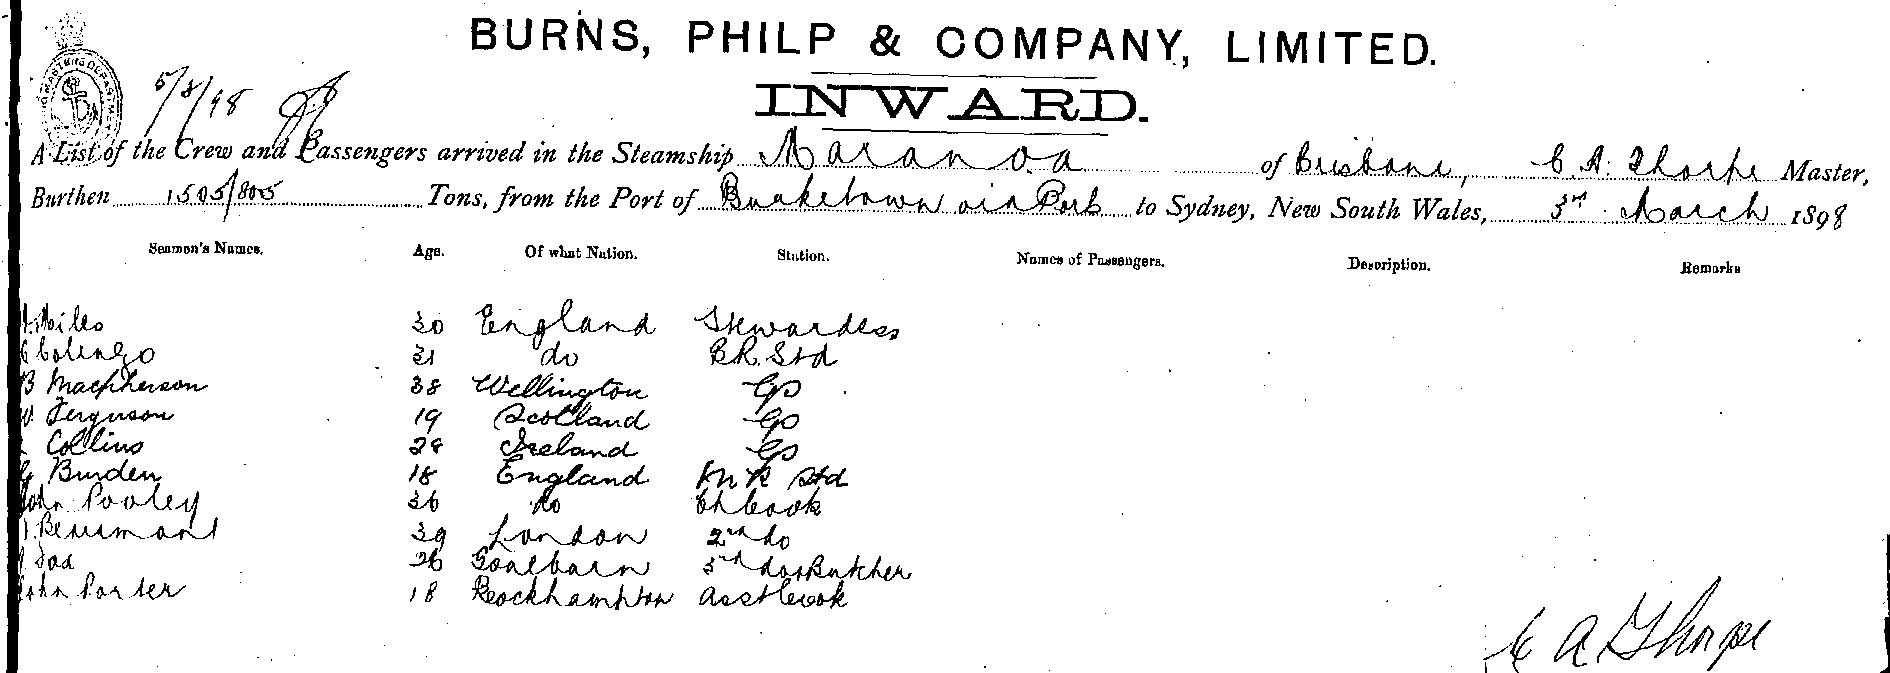 BURNS, PHILP & COMPANY, LIMITED.
INWARD.
5/3/98
A List of the Crew and Passengers arrived in the Steamship Maranoa of Brisbane, C A Thorpe Master,
Burthen 1505/805 Tons, from the Port of Burketown via Ports to Sydney, New South Wales, 3rd March 1898
Seamen's Names. Age. Of what Nation. Station. Names of Passengers. Description. Remarks
Miles 30 England Stewardess
31 do B.R. Std
B Macpherson 38 Wellington GS
W Ferguson 19 Scotland GS
Collins 28 Ireland GS
G Burden 18 England Std
John Pooley 36 do Ch Cook
Beaumont 39 London 2nd do
26 Goulburn 3rd do & Butcher
John Porter 18 Rockhampton Asst Cook
C A Thorpe